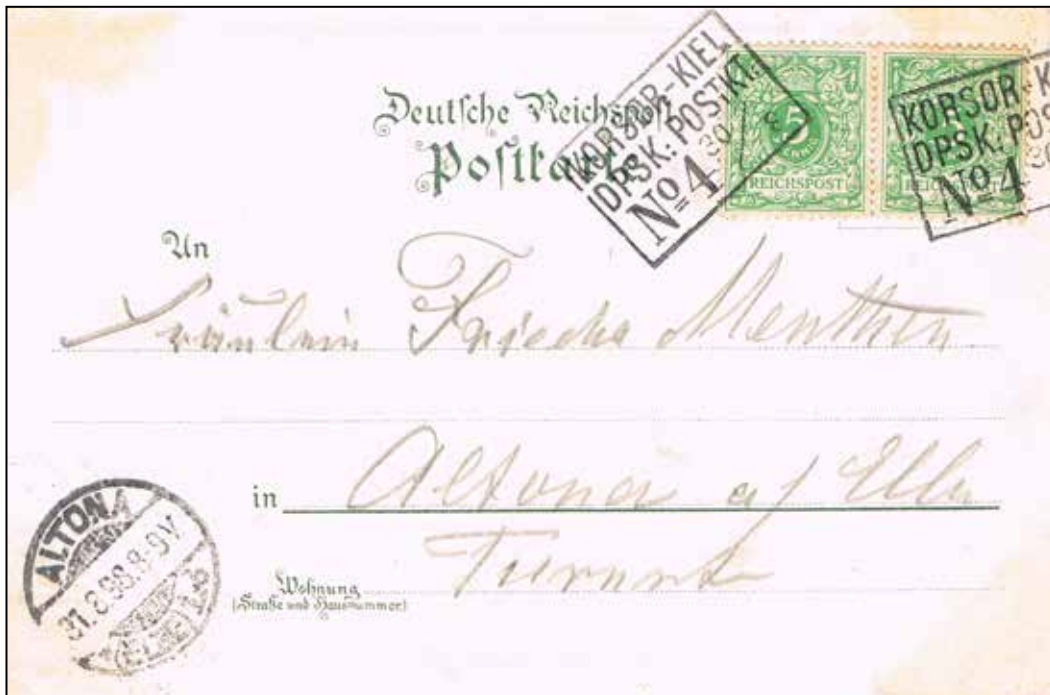 Deutsche Reichspost
Postkarte
KORSOR-KIEL
DPSK: POSTKT:
No 4 30 8
5
REICHSPOST
5
REICHSPOST
KORSOR-K
DPSK: POS
No 4 30
An
Fräulein Frieda Menthien
in Altona a/ Elbe
Wohnung
(Straße und Hausnummer)
ALTONA
31.8.98.8-9V
(ELBE)